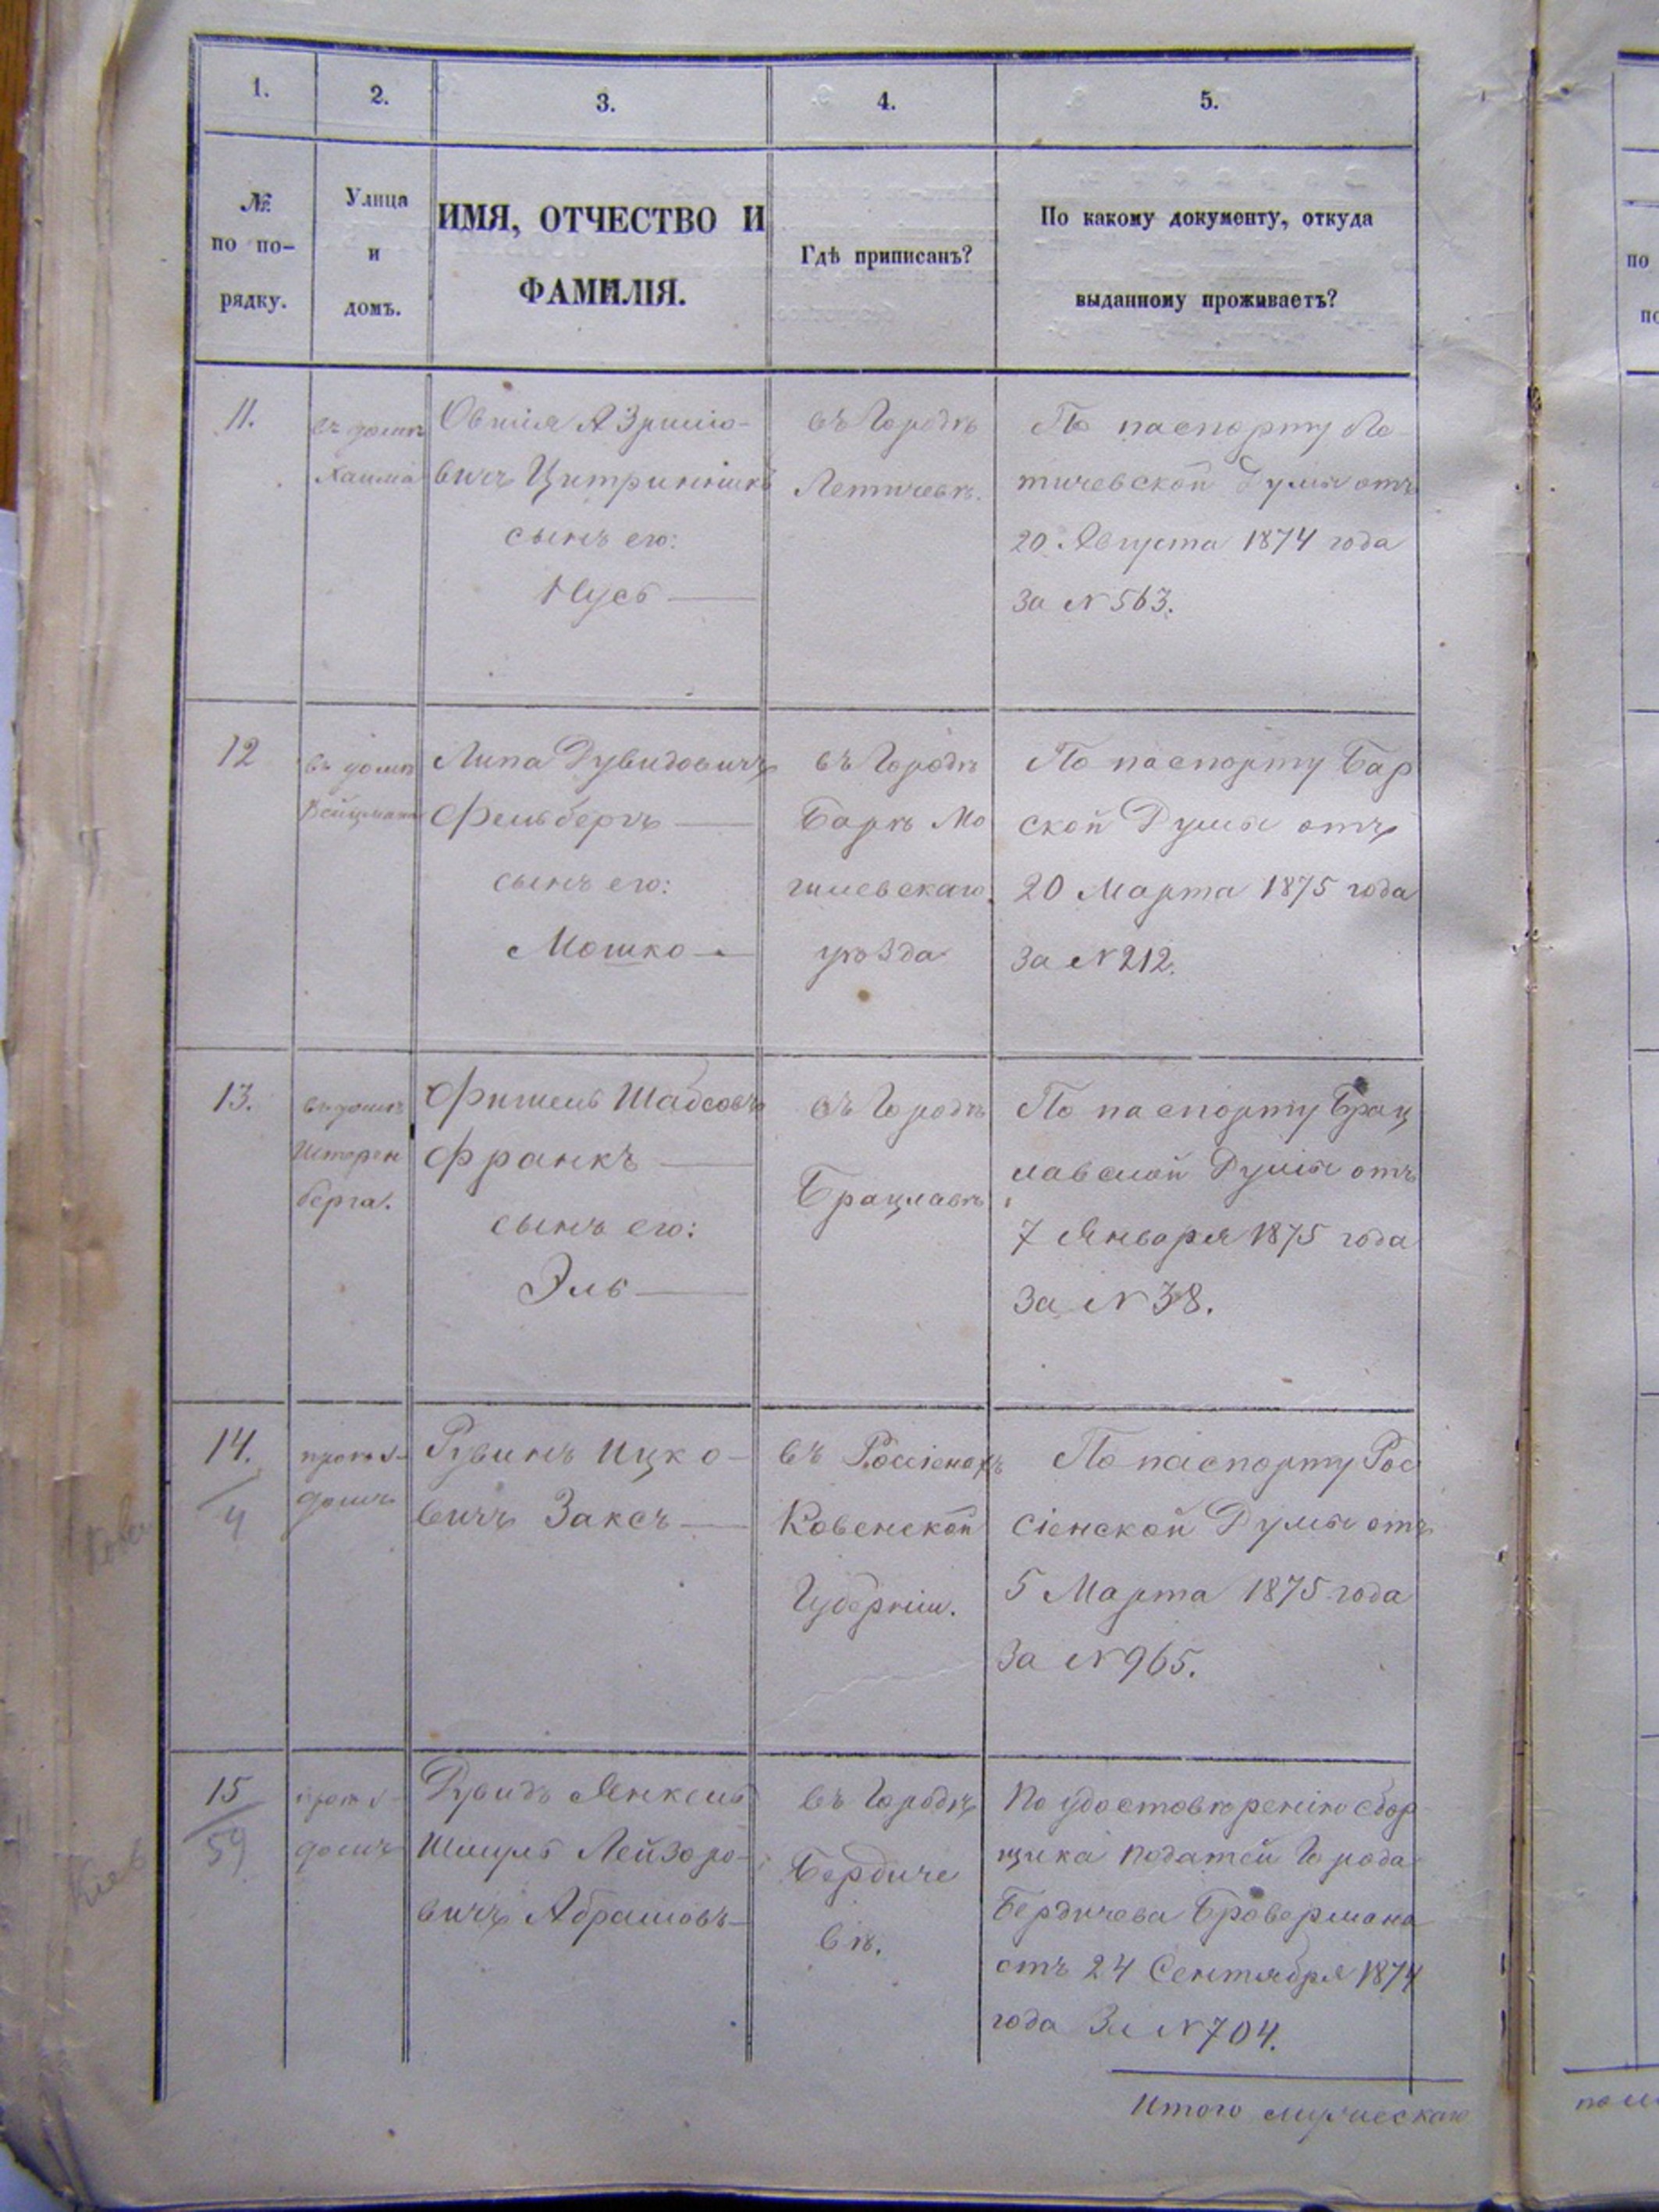 1.
2.
3.
4.
5.
№
по по-
рядку.
Улица
и
домъ.
ИМЯ, ОТЧЕСТВО И
ФАМИЛІЯ.
Гдѣ приписанъ?
По какому документу, откуда
выданному проживаетъ?
11.
въ домѣ
Хаима
Овшія Азрилю-
вичъ Цитринникъ
сынъ его:
Нусь —
въ Городѣ
Летичевѣ.
По паспорту Ле-
тичевской Думы отъ
20 Августа 1874 года
За № 563.
12
въ домѣ
Вейцмана
Липа Дувидовичъ
Фельбергъ —
сынъ его:
Мошко —
въ Городѣ
Барѣ Мо
гилевскаго
уѣзда
По паспорту Бар
ской Думы отъ
20 Марта 1875 года
За № 212.
13.
въ домѣ
Штерен
берга.
Фишель Шабсовъ
Франкъ —
сынъ его:
Эль —
въ Городѣ
Брацлавѣ
По паспорту Брац
лавской Думы отъ
7 Января 1875 года
За № 38.
14.
4
домъ
Рувинъ Ицко-
вичъ Заксъ —
въ Россіенахъ
Ковенской
Губерніи.
По паспорту Рос
сіенской Думы отъ
5 Марта 1875 года
За № 965.
15
59
домъ
Дувидъ Янкель
Шмуль Лейзоро-
вичъ Абрамовъ —
въ Городѣ
Бердиче
вѣ.
По удостовѣренію сбор
щика податей Города
Бердичева Бровермана
отъ 24 Сентября 1874
года За № 704.
Киев
Итого мужескаго
по